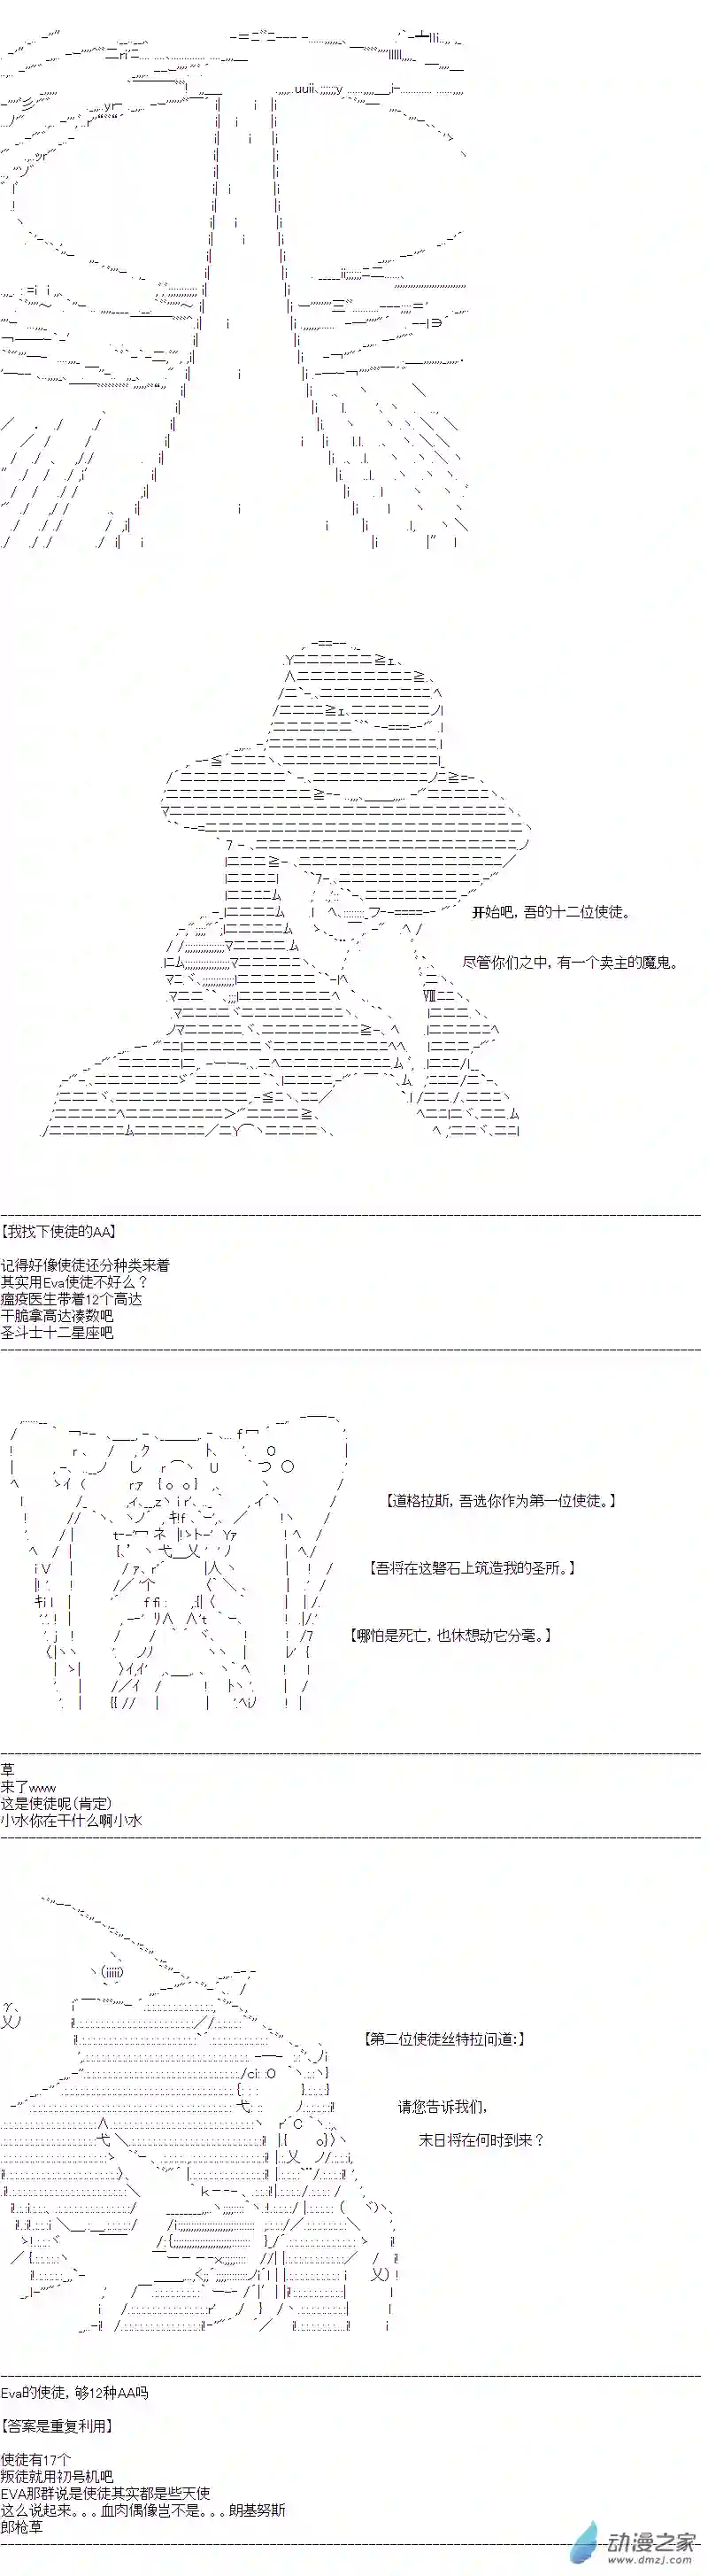 开始吧，吾的十二位使徒。
尽管你们之中，有一个卖主的魔鬼。
【我找下使徒的AA】
记得好像使徒还分种类来着
其实用Eva使徒不好么？
瘟疫医生带着12个高达
干脆拿高达凑数吧
圣斗士十二星座吧
【道格拉斯，吾选你作为第一位使徒。】
【吾将在这磐石上筑造我的圣所。】
【哪怕是死亡，也休想动它分毫。】
草
来了www
这是使徒呢（肯定）
小水你在干什么啊小水
【第二位使徒丝特拉问道：】
请您告诉我们，
末日将在何时到来？
Eva的使徒，够12种AA吗
【答案是重复利用】
使徒有17个
叛徒就用初号机吧
EVA那群说是使徒其实都是些天使
这么说起来。。。血肉偶像岂不是。。。朗基努斯
郎枪草
动漫之家
www.dmzj.com